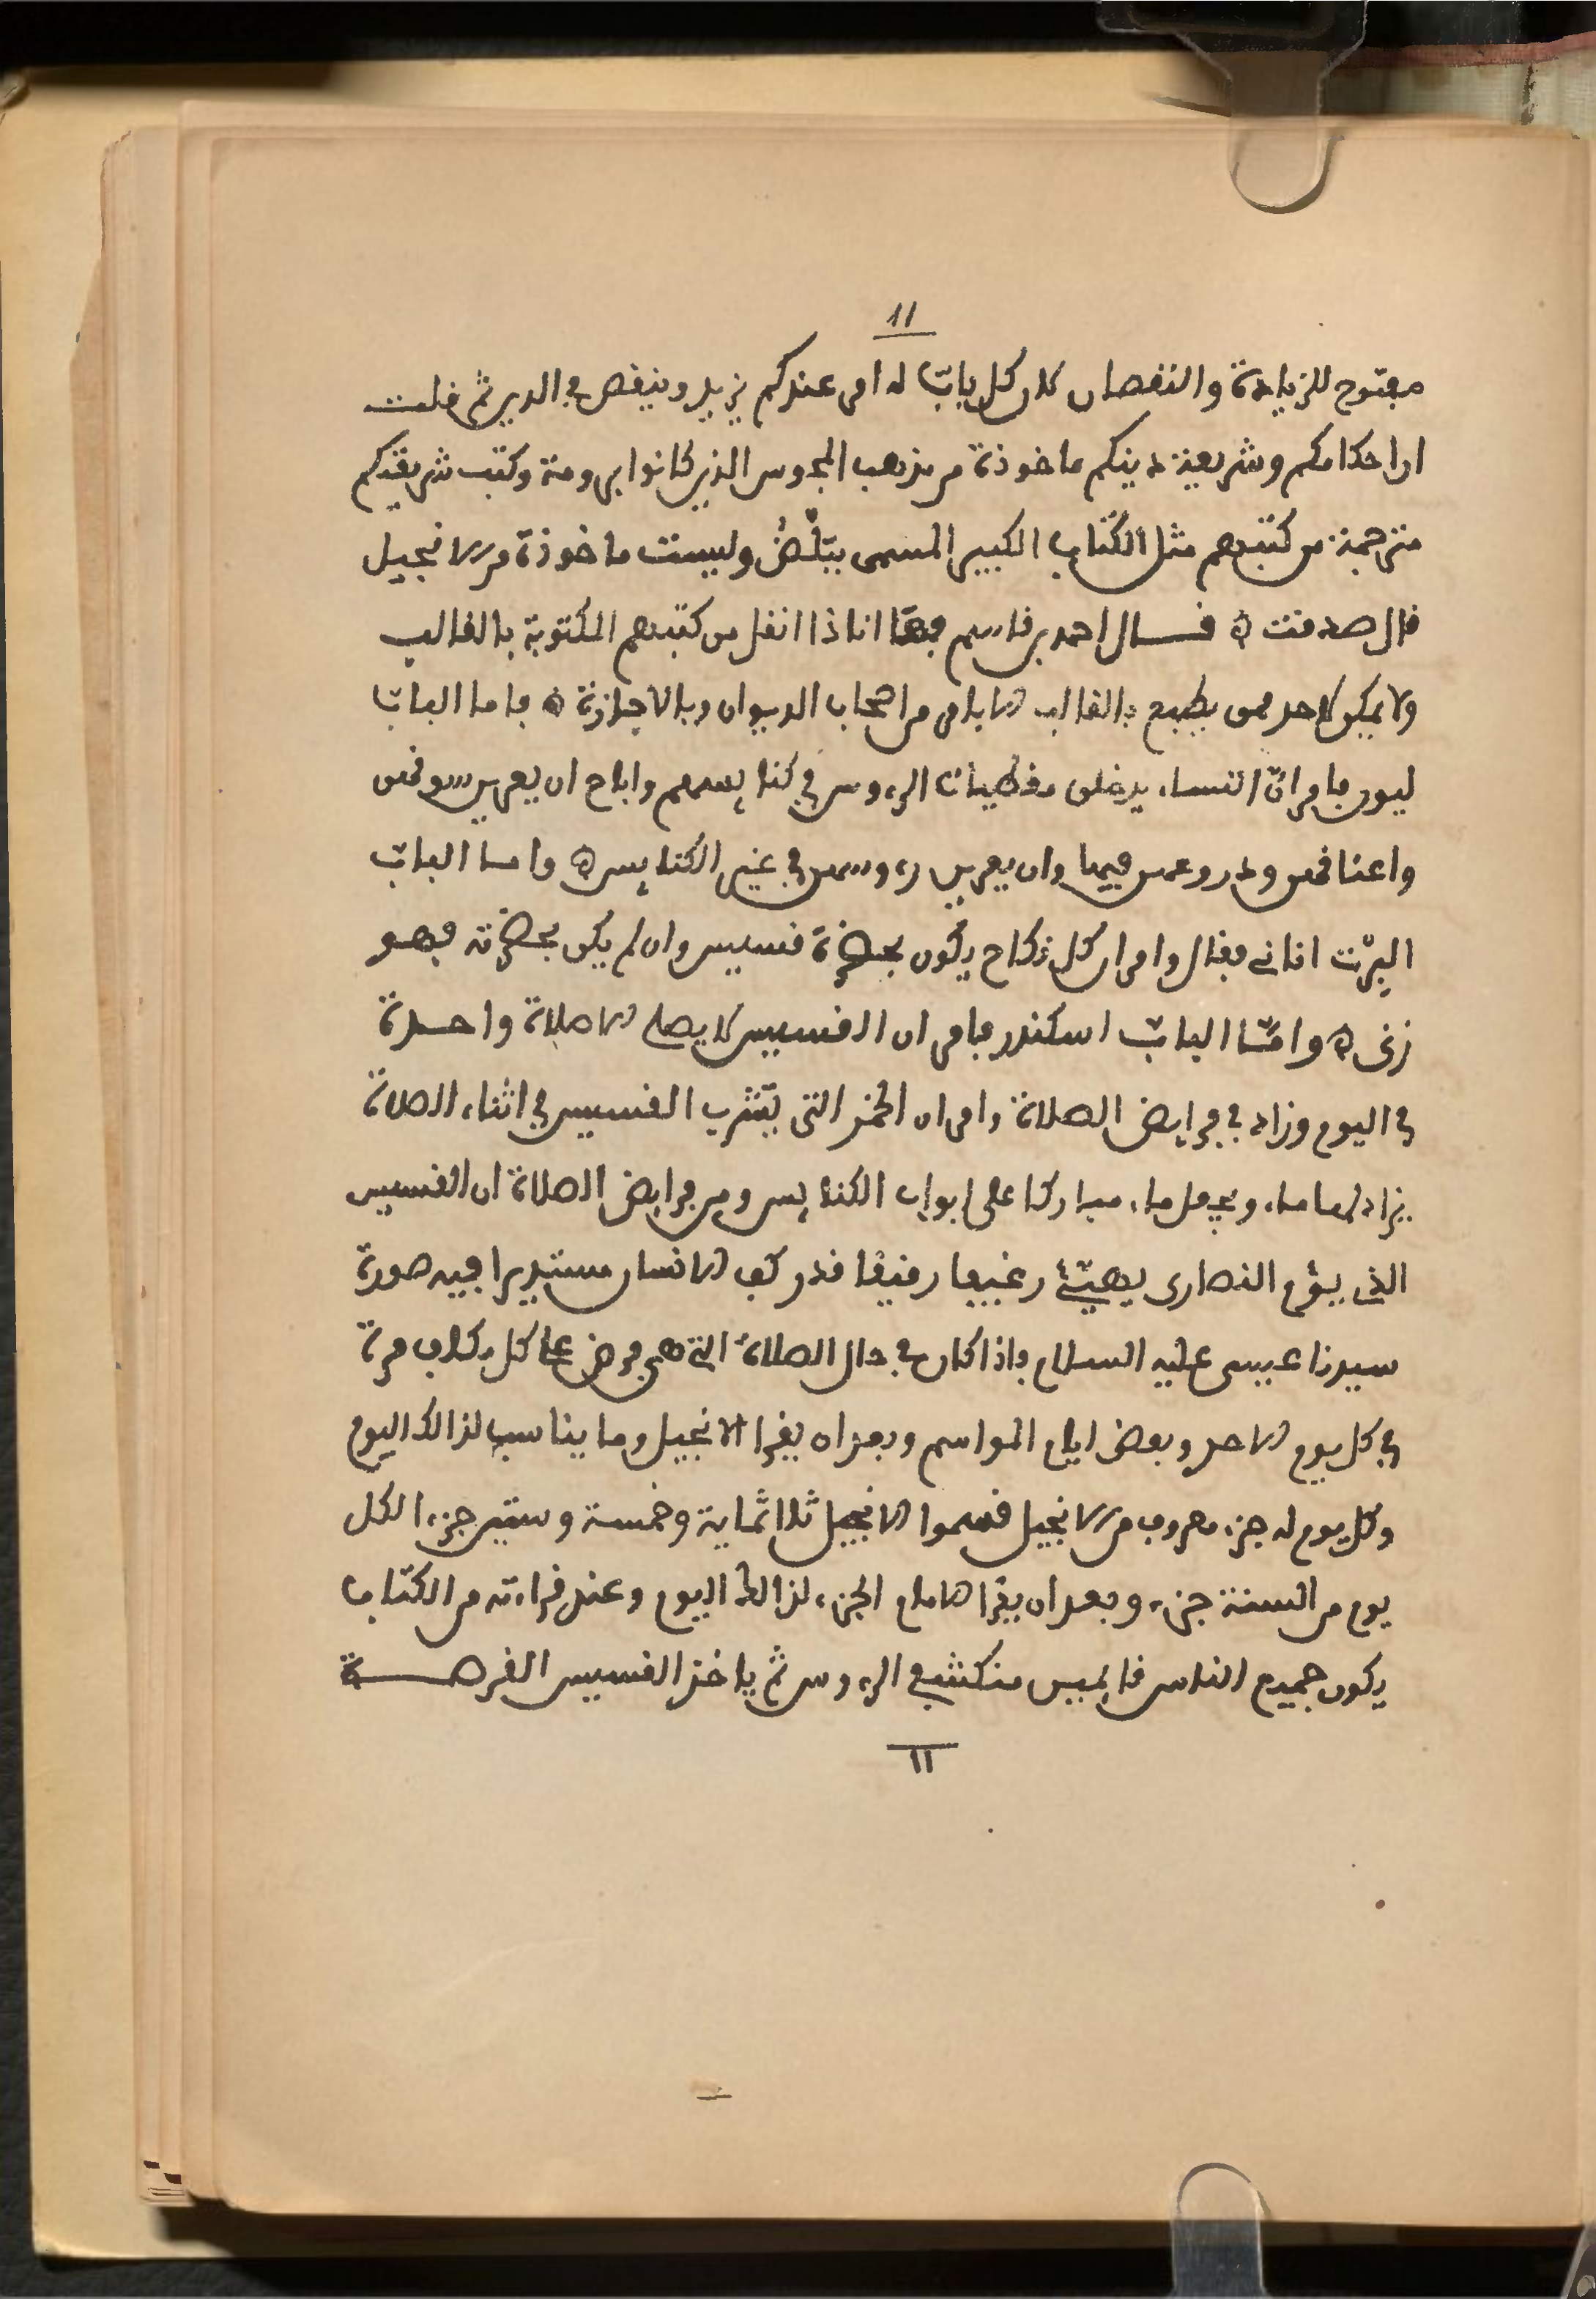 11
مفتوح للزيادة والنقصان لان كل باب له امر عندكم يزيد وينقص في الدين ثم قلت
ان احكامكم وشريعة دينكم ماخوذة من مذهب المجوس الذين كانوا برومة وكتب شريعتكم
مترجمة من كتبهم مثل الكتاب الكبير المسمى ببلض وليست ماخوذة من الانجيل
قال صدقت ۞ قال احمد بن قاسم فها انا ذا انقل من كتبهم المكتوبة بالقالب
ولا يمكن لاحد ممن يطبع بالقالب الا بامر من اصحاب الديوان وبالاجازة ۞ فاما الباب
ليون فامر ان النساء يدخلن مغطيات الرءوس في كنايسهم واباح ان يعرين سوقهن
واعناقهن ودروعهن فيها وان يعرين رءوسهن في غير الكنايس ۞ واما الباب
البرت اناني فقال وامر ان كل نكاح يكون بحضرة قسيس وان لم يكن بحضرته فهو
زنى ۞ وامّا الباب اسكندر فامر ان القسيس لا يصلي الا صلاة واحدة
في اليوم وزاد في فرايض الصلاة وامر ان الخمر التي يشرب القسيس في اثناء الصلاة
يزاد لها ماء ويجعل ماء مباركا على ابواب الكنايس ومن فرايض الصلاة ان القسيس
الذي يؤم النصارى يهيّئ رغيفا رقيقا قدر كف الانسان مستديرا فيه صورة
سيدنا عيسى عليه السلام فاذا كان في حال الصلاة التي هي فرض على كل مكلف مرة
في كل يوم الاحد وبعض ايام المواسم وبعد ان يقرا الانجيل وما يناسب لذالك اليوم
وكل يوم له جزء معروف من الانجيل قسموا الانجيل ثلاثماية وخمسة وستين جزء الكل
يوم من السنة جزء وبعد ان يقرا الامام الجزء لذالك اليوم وعند قراءته من الكتاب
يكون جميع الناس قايمين منكشفي الرءوس ثم ياخذ القسيس القرصة
11